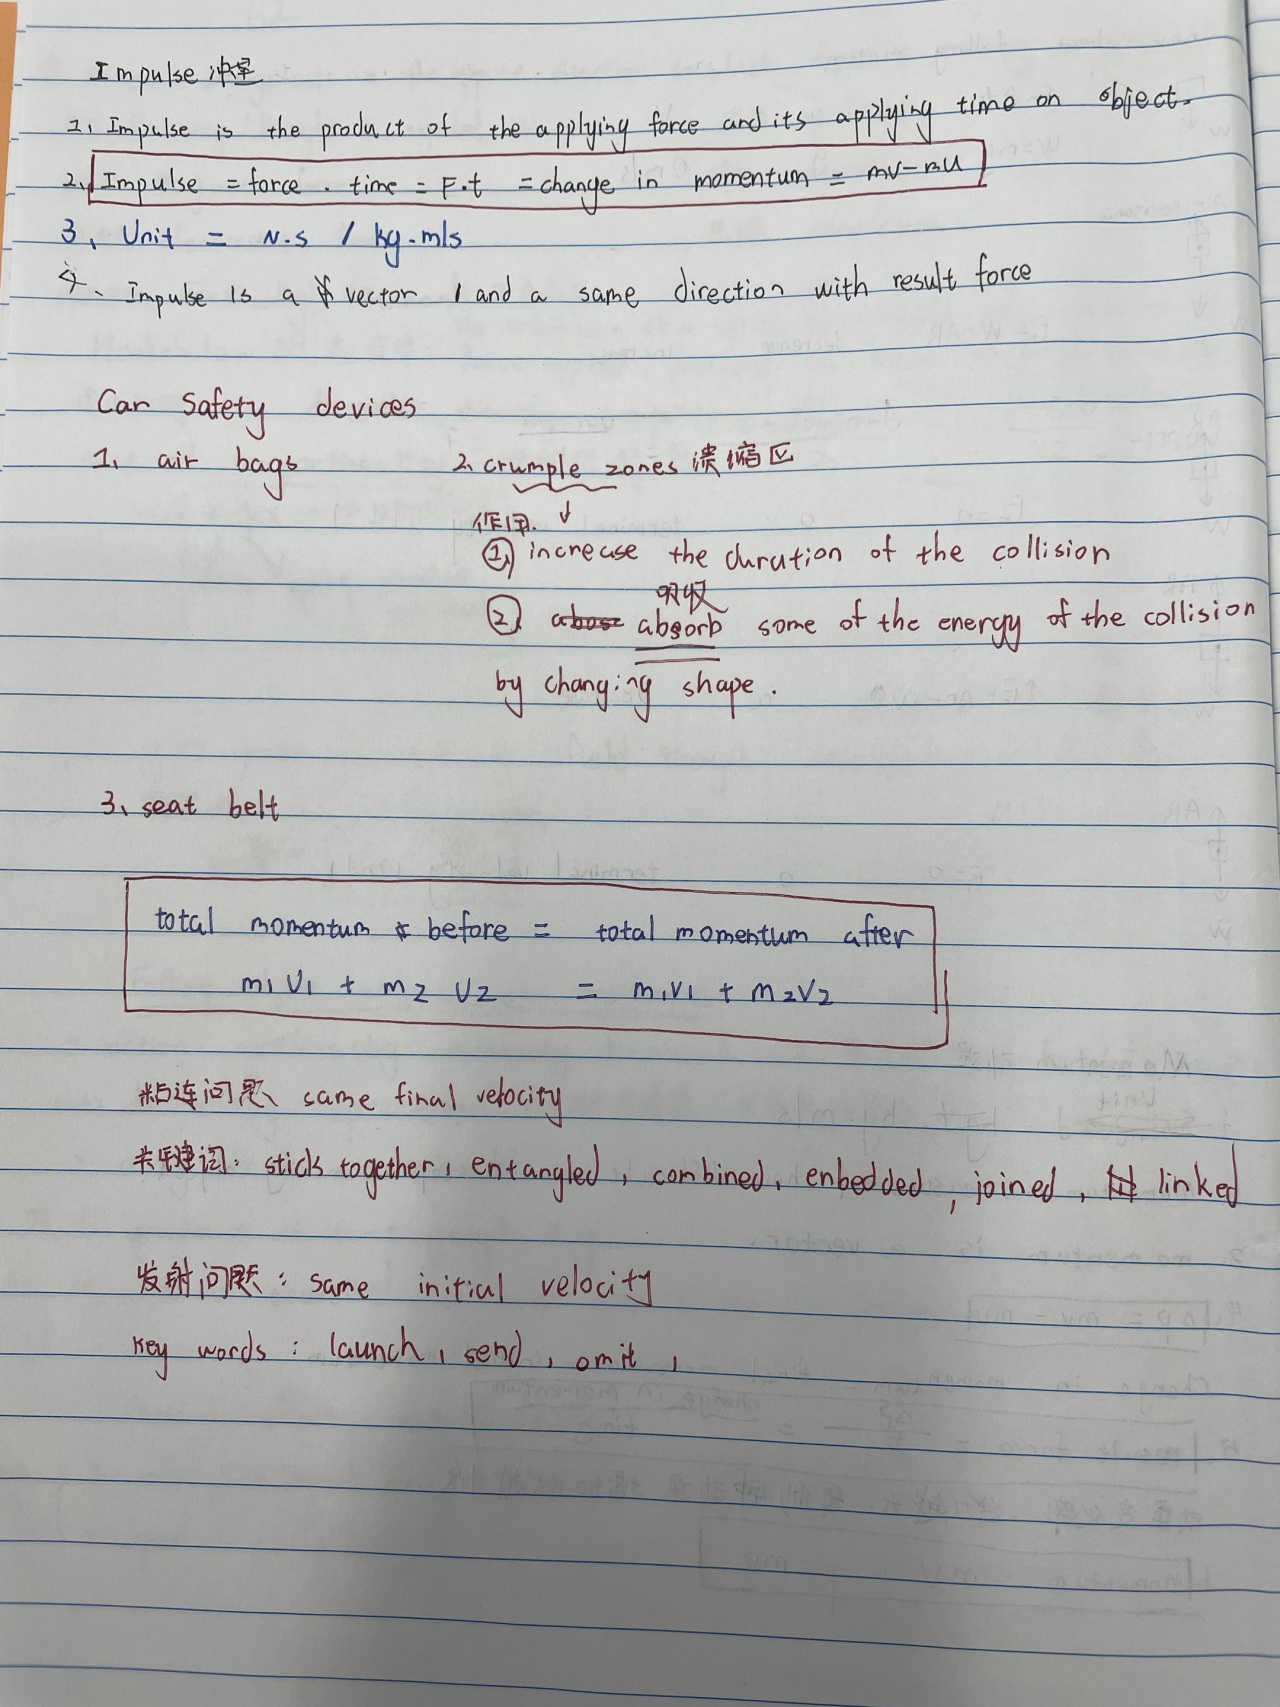 Impulse 冲量
1. Impulse is the product of the applying force and its applying time on object.
2. Impulse = force · time = F·t = change in momentum = mv-mu
3. Unit = N·s / kg·m/s
4. Impulse is a vector, and a same direction with result force
Car Safety devices
1. air bags 2. crumple zones 溃缩区
作用. ↓
① increase the duration of the collision
吸收
② absorb some of the energy of the collision
by changing shape.
3. seat belt
total momentum before = total momentum after
m1U1 + m2 U2 = m1V1 + m2V2
粘连问题 same final velocity
关键词: stick together, entangled, combined, enbedded, joined, linked
发射问题: same initial velocity
key words: launch, send, omit,